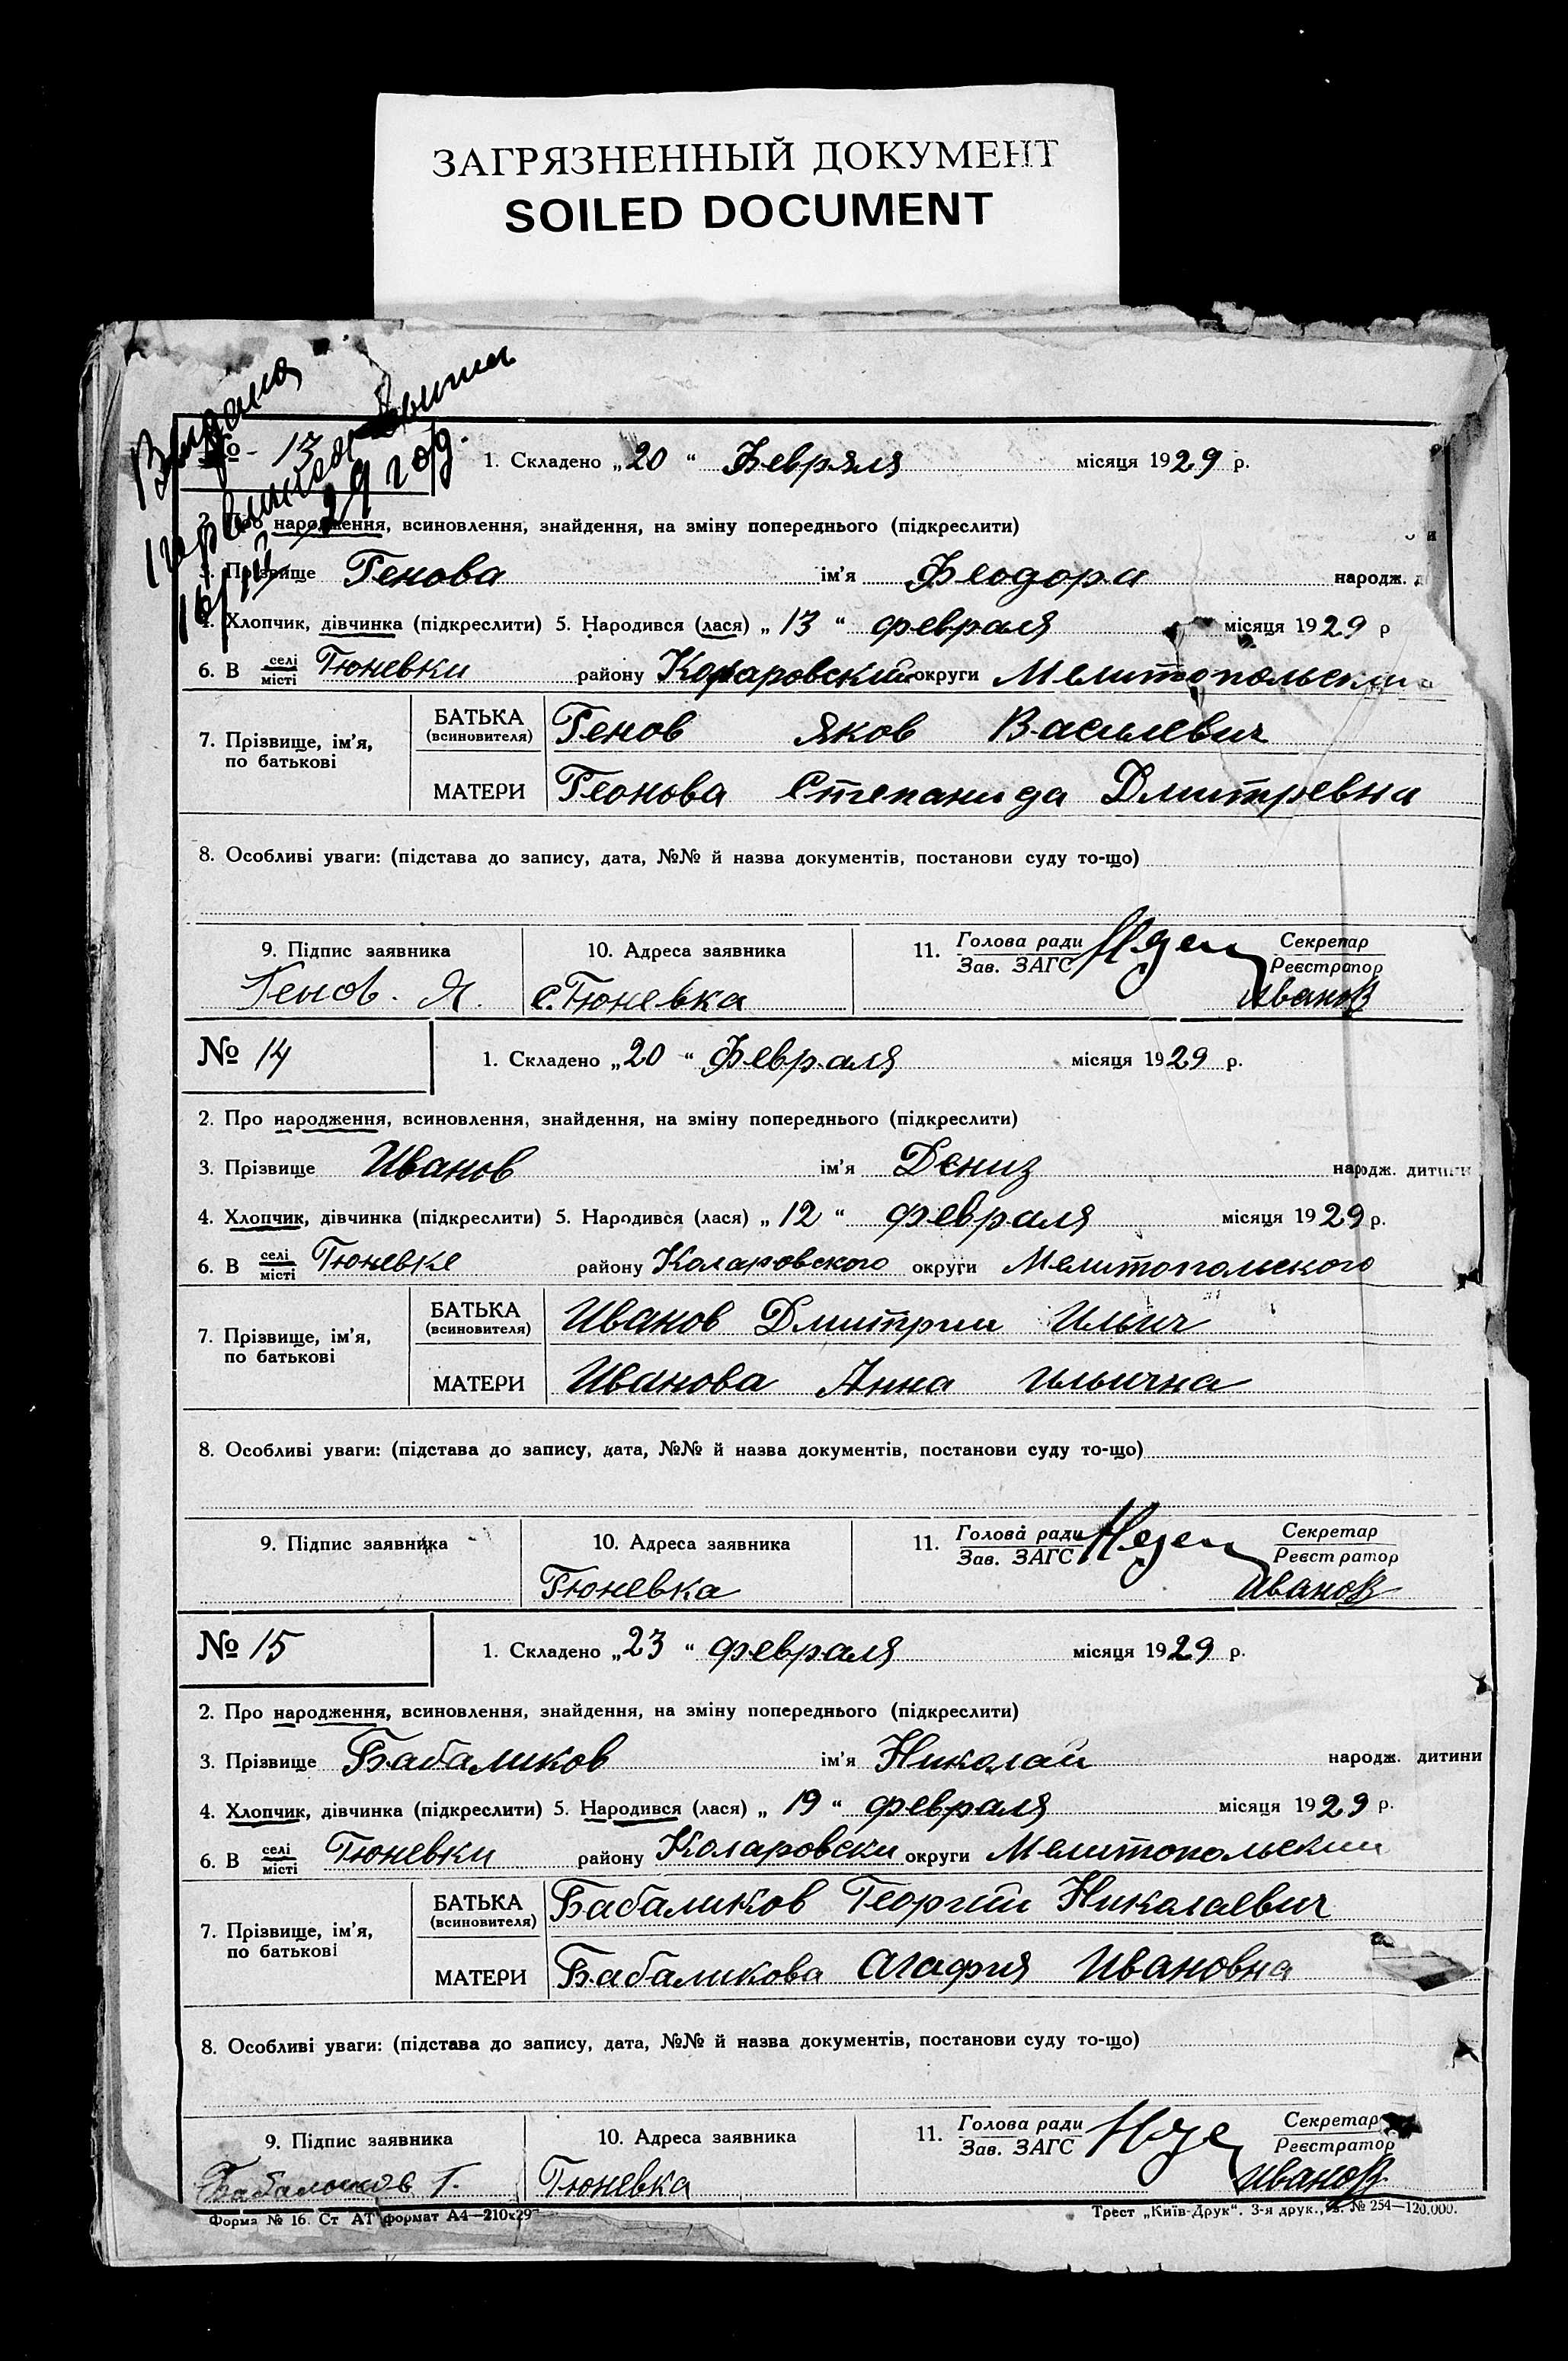 ЗАГРЯЗНЕННЫЙ ДОКУМЕНТ
SOILED DOCUMENT
№ 13 1. Складено „20“ Февряля місяця 1929 р.
2. Про народження, всиновлення, знайдення, на зміну попереднього (підкреслити)
3. Прізвище Генова ім'я Феодора народж.
4. Хлопчик, дівчинка (підкреслити) 5. Народився (лася) „13“ февраля місяця 1929 р
6. В селі місті Тюневки району Коларовский округи Мелитопольский
7. Прізвище, ім'я, по батькові
БАТЬКА (всиновителя) Генов Яков Василевич
МАТЕРИ Геонова Степанида Дмитревна
8. Особливі уваги: (підстава до запису, дата, №№ й назва документів, постанови суду то-що)
9. Підпис заявника 10. Адреса заявника 11. Голова ради Зав. ЗАГС Секретар Реєстратор
Генов. Я. с. Тюневка Иванов
№ 14 1. Складено „20“ Февраля місяця 1929 р.
2. Про народження, всиновлення, знайдення, на зміну попереднього (підкреслити)
3. Прізвище Иванов ім'я Дениз народж. дитини
4. Хлопчик, дівчинка (підкреслити) 5. Народився (лася) „12“ февраля місяця 1929 р.
6. В селі місті Тюневке району Коларовского округи Мелитопольского
7. Прізвище, ім'я, по батькові
БАТЬКА (всиновителя) Иванов Дмитрии Ильич
МАТЕРИ Иванова Анна Ильична
8. Особливі уваги: (підстава до запису, дата, №№ й назва документів, постанови суду то-що)
9. Підпис заявника 10. Адреса заявника 11. Голова ради Зав. ЗАГС Секретар Реєстратор
Тюневка Иванов
№ 15 1. Складено „23“ февраля місяця 1929 р.
2. Про народження, всиновлення, знайдення, на зміну попереднього (підкреслити)
3. Прізвище Бабаликов ім'я Николай народж. дитини
4. Хлопчик, дівчинка (підкреслити) 5. Народився (лася) „19“ февраля місяця 1929 р.
6. В селі місті Тюневки району Коларовски округи Мелитопольским
7. Прізвище, ім'я, по батькові
БАТЬКА (всиновителя) Бабаликов Георгий Николаевич
МАТЕРИ Бабаликова Агафия Ивановна
8. Особливі уваги: (підстава до запису, дата, №№ й назва документів, постанови суду то-що)
9. Підпис заявника 10. Адреса заявника 11. Голова ради Зав. ЗАГС Секретар Реєстратор
Г. Тюневка Иванов
Форма № 16. Ст АТ формат А4—210х29 Трест „Київ-Друк“. 3-я друк., № 254—120.000.